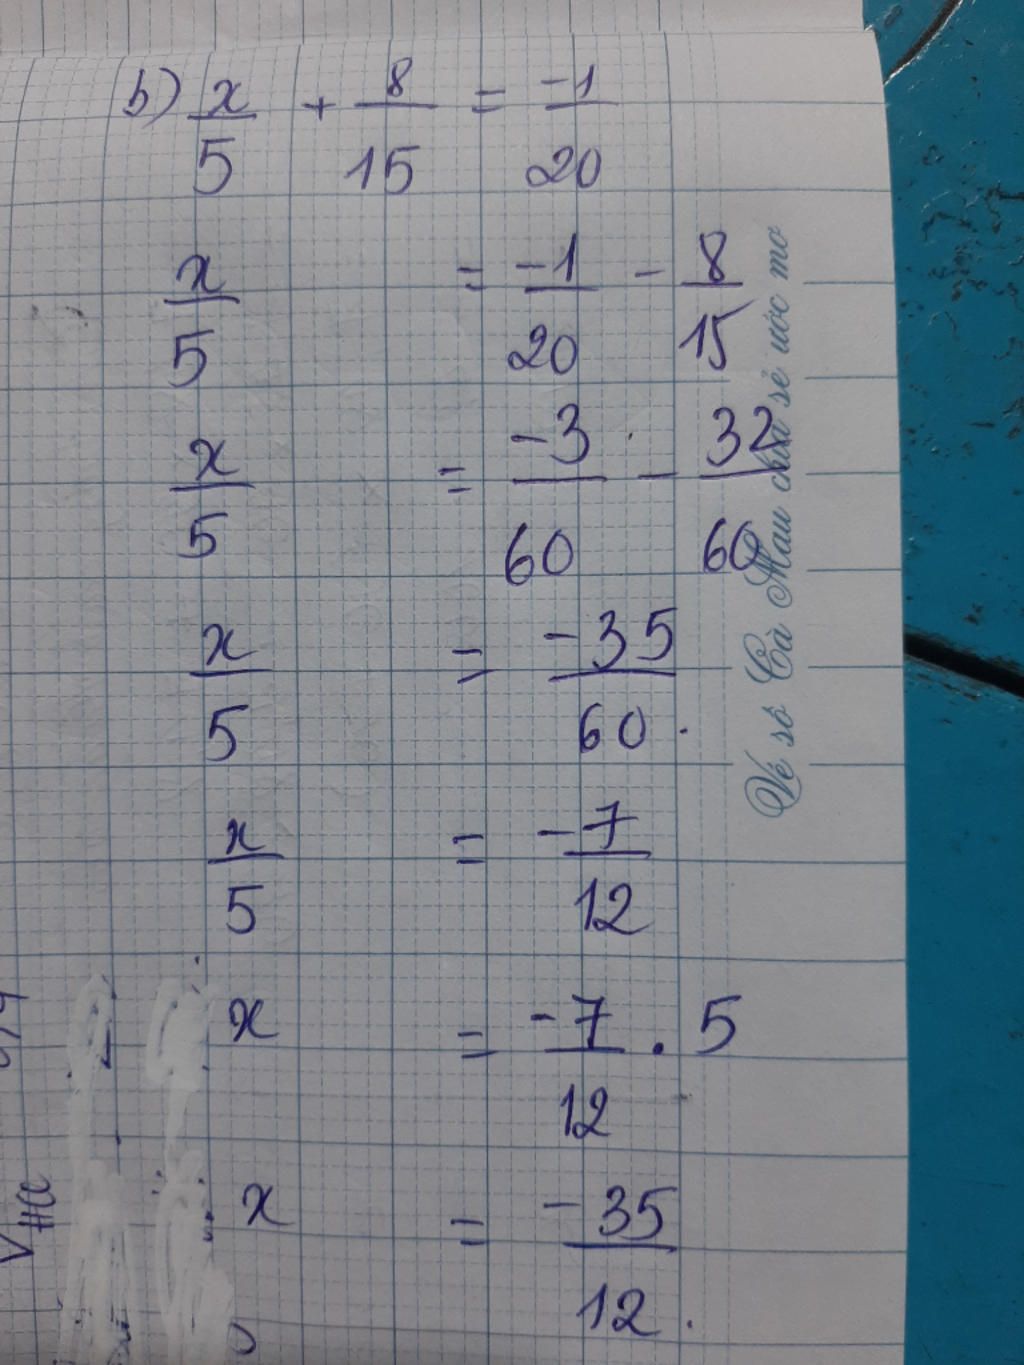 b) x/5 + 8/15 = -1/20
x/5 = -1/20 - 8/15
x/5 = -3/60 - 32/60
x/5 = -35/60.
x/5 = -7/12
x = -7/12 . 5
x = -35/12.
Vé số Cà Mau chia sẻ ước mơ